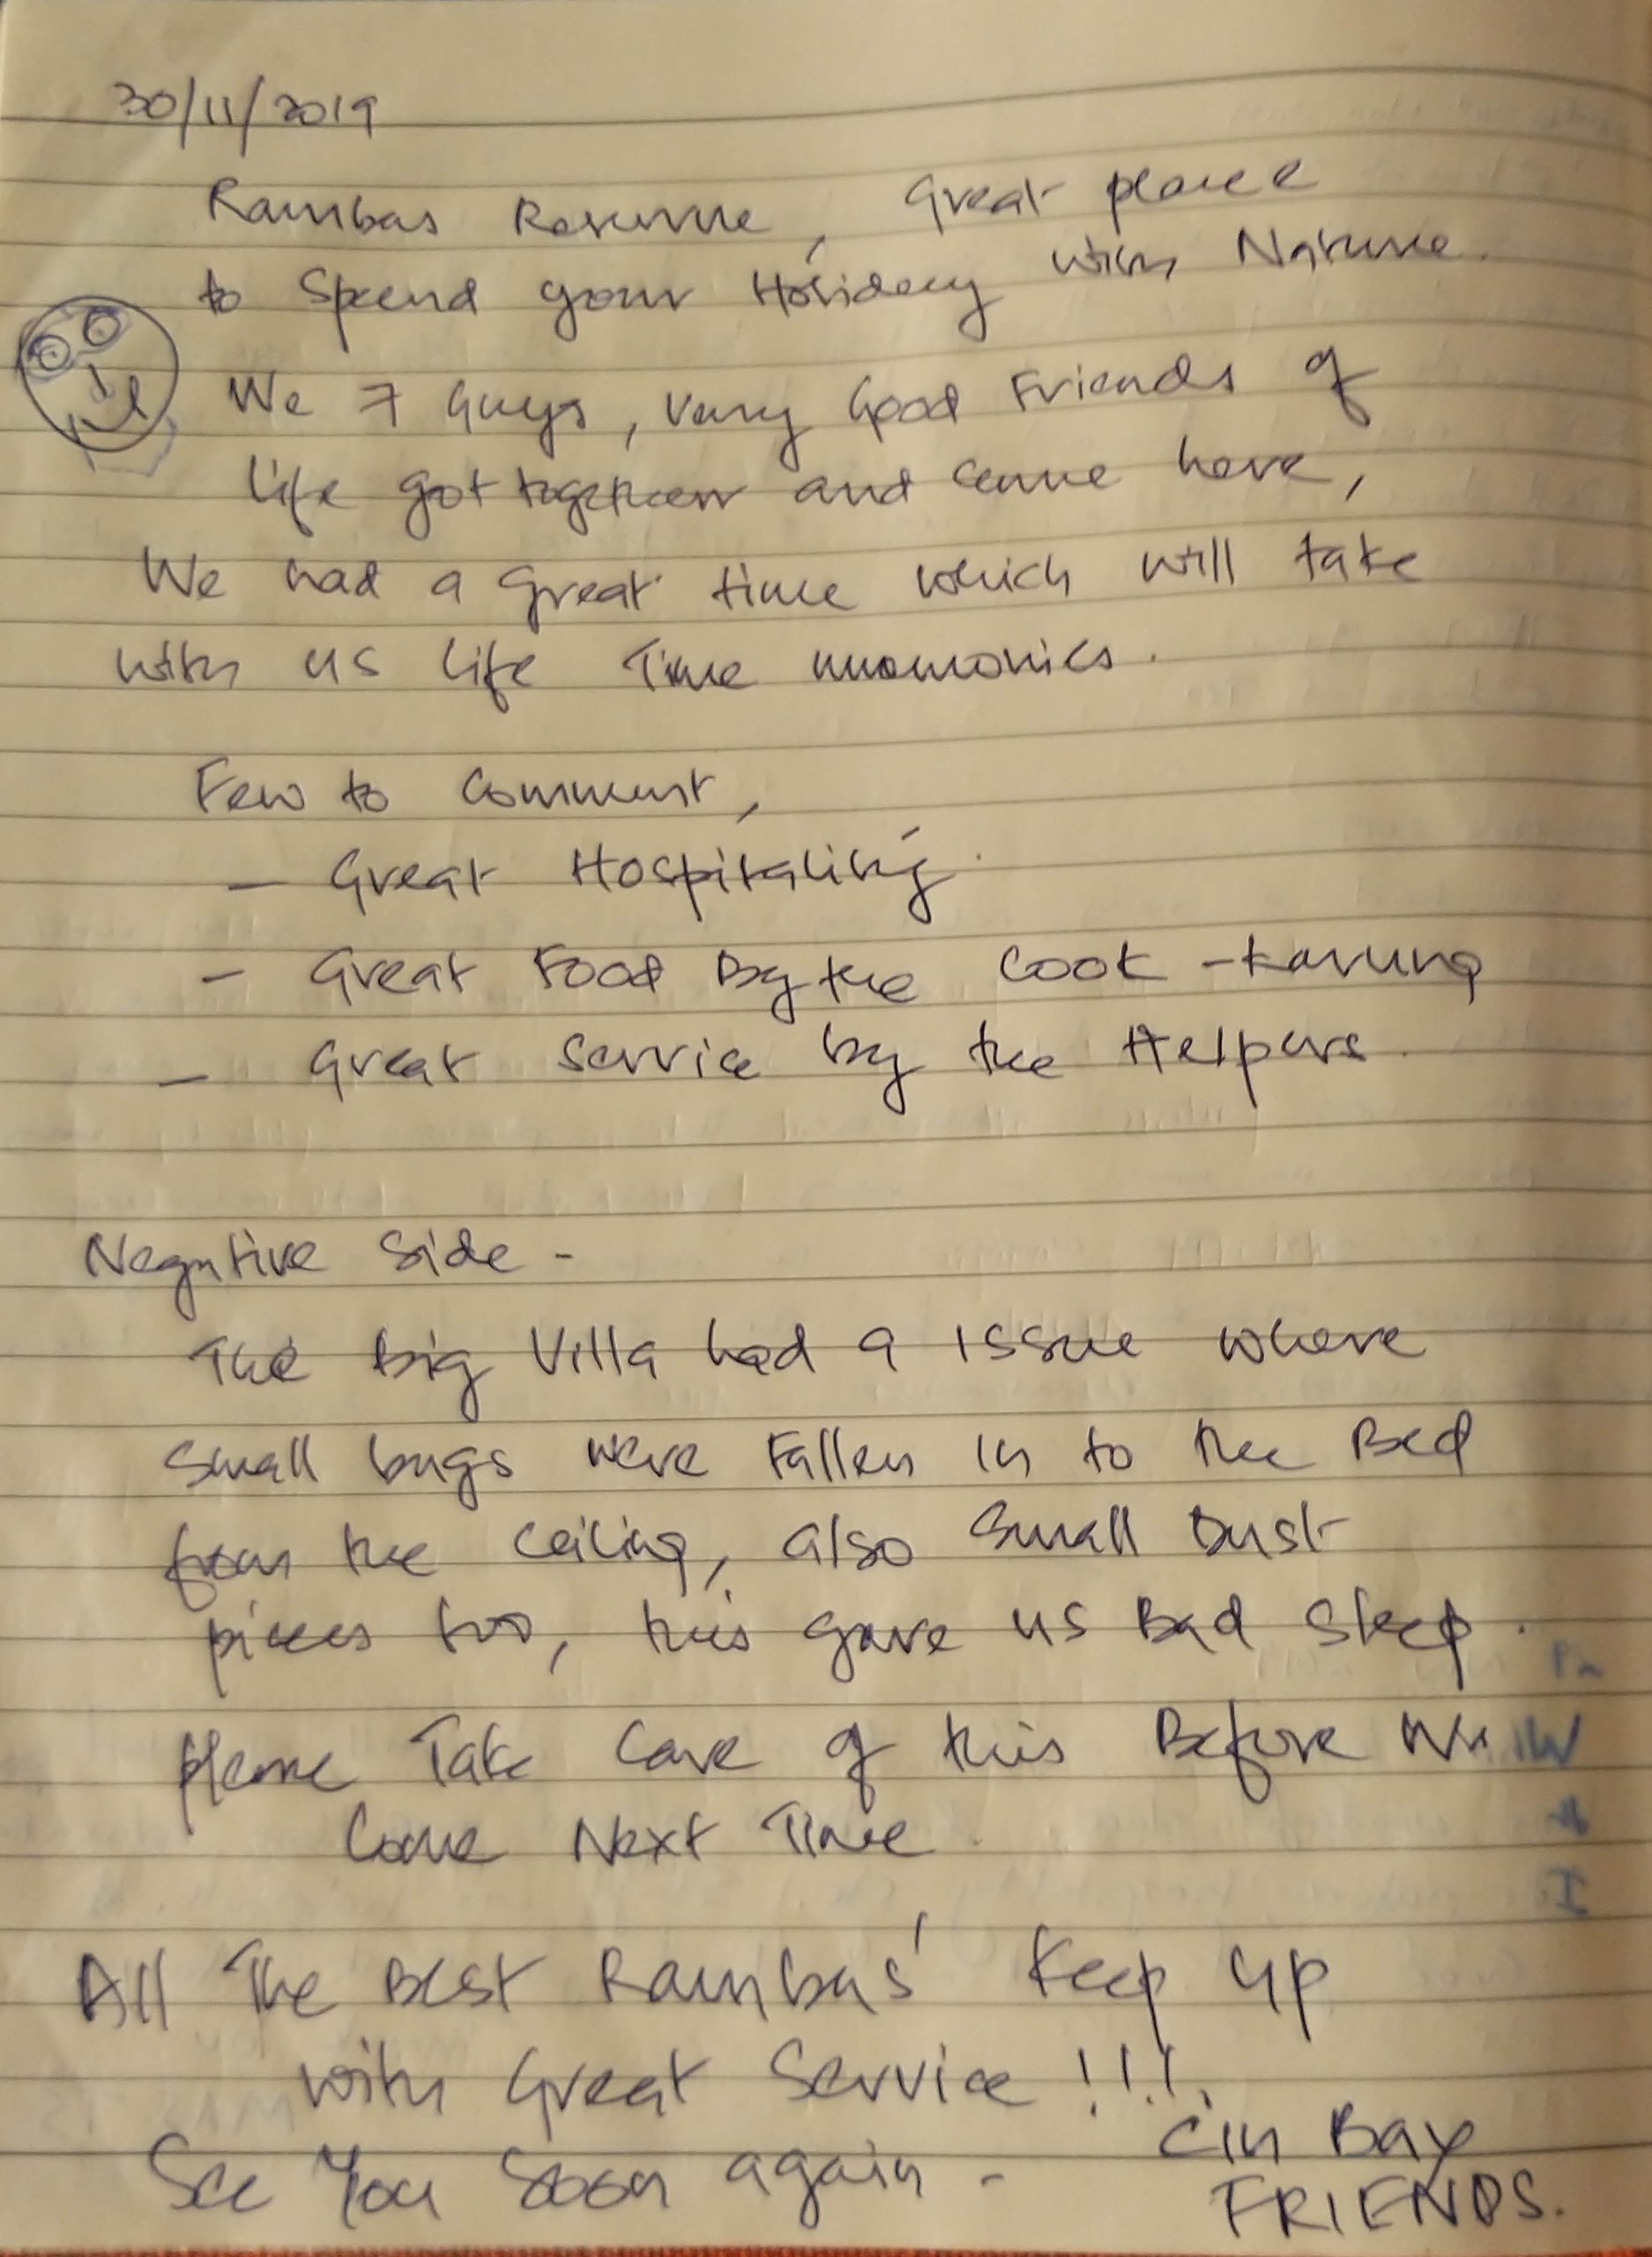 30/11/2019
Rambas Reserve, Great place
to Spend your Holiday with Nature.
We 7 Guys, very Good Friends of
life got together and came here,
We had a great time which will take
with us life Time memories.
Few to Comment,
- Great Hospitality.
- Great Food By the Cook - Karuna
- Great Service by the Helpers.
Negative Side -
The Big Villa had a issue where
Small bugs were Fallen in to the Bed
from the Ceiling, also Small Dust
pieces too, this gave us Bad Sleep.
Please Take Care of this Before We
Come Next Time.
All The Best Rambas' Keep up
with Great Service !!!.
See You Soon again -
Cin Bay
FRIENDS.